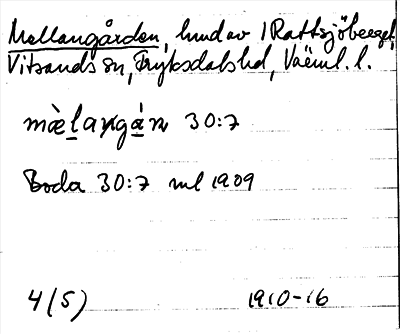 Mellangården, hmd av 1 Rattsjöberget,
Vitsands sn, Fryksdals hd, Värml. l.
mɛ̀langán 30:7
Boda 30:7 ml 1909
4(5) 1910-16